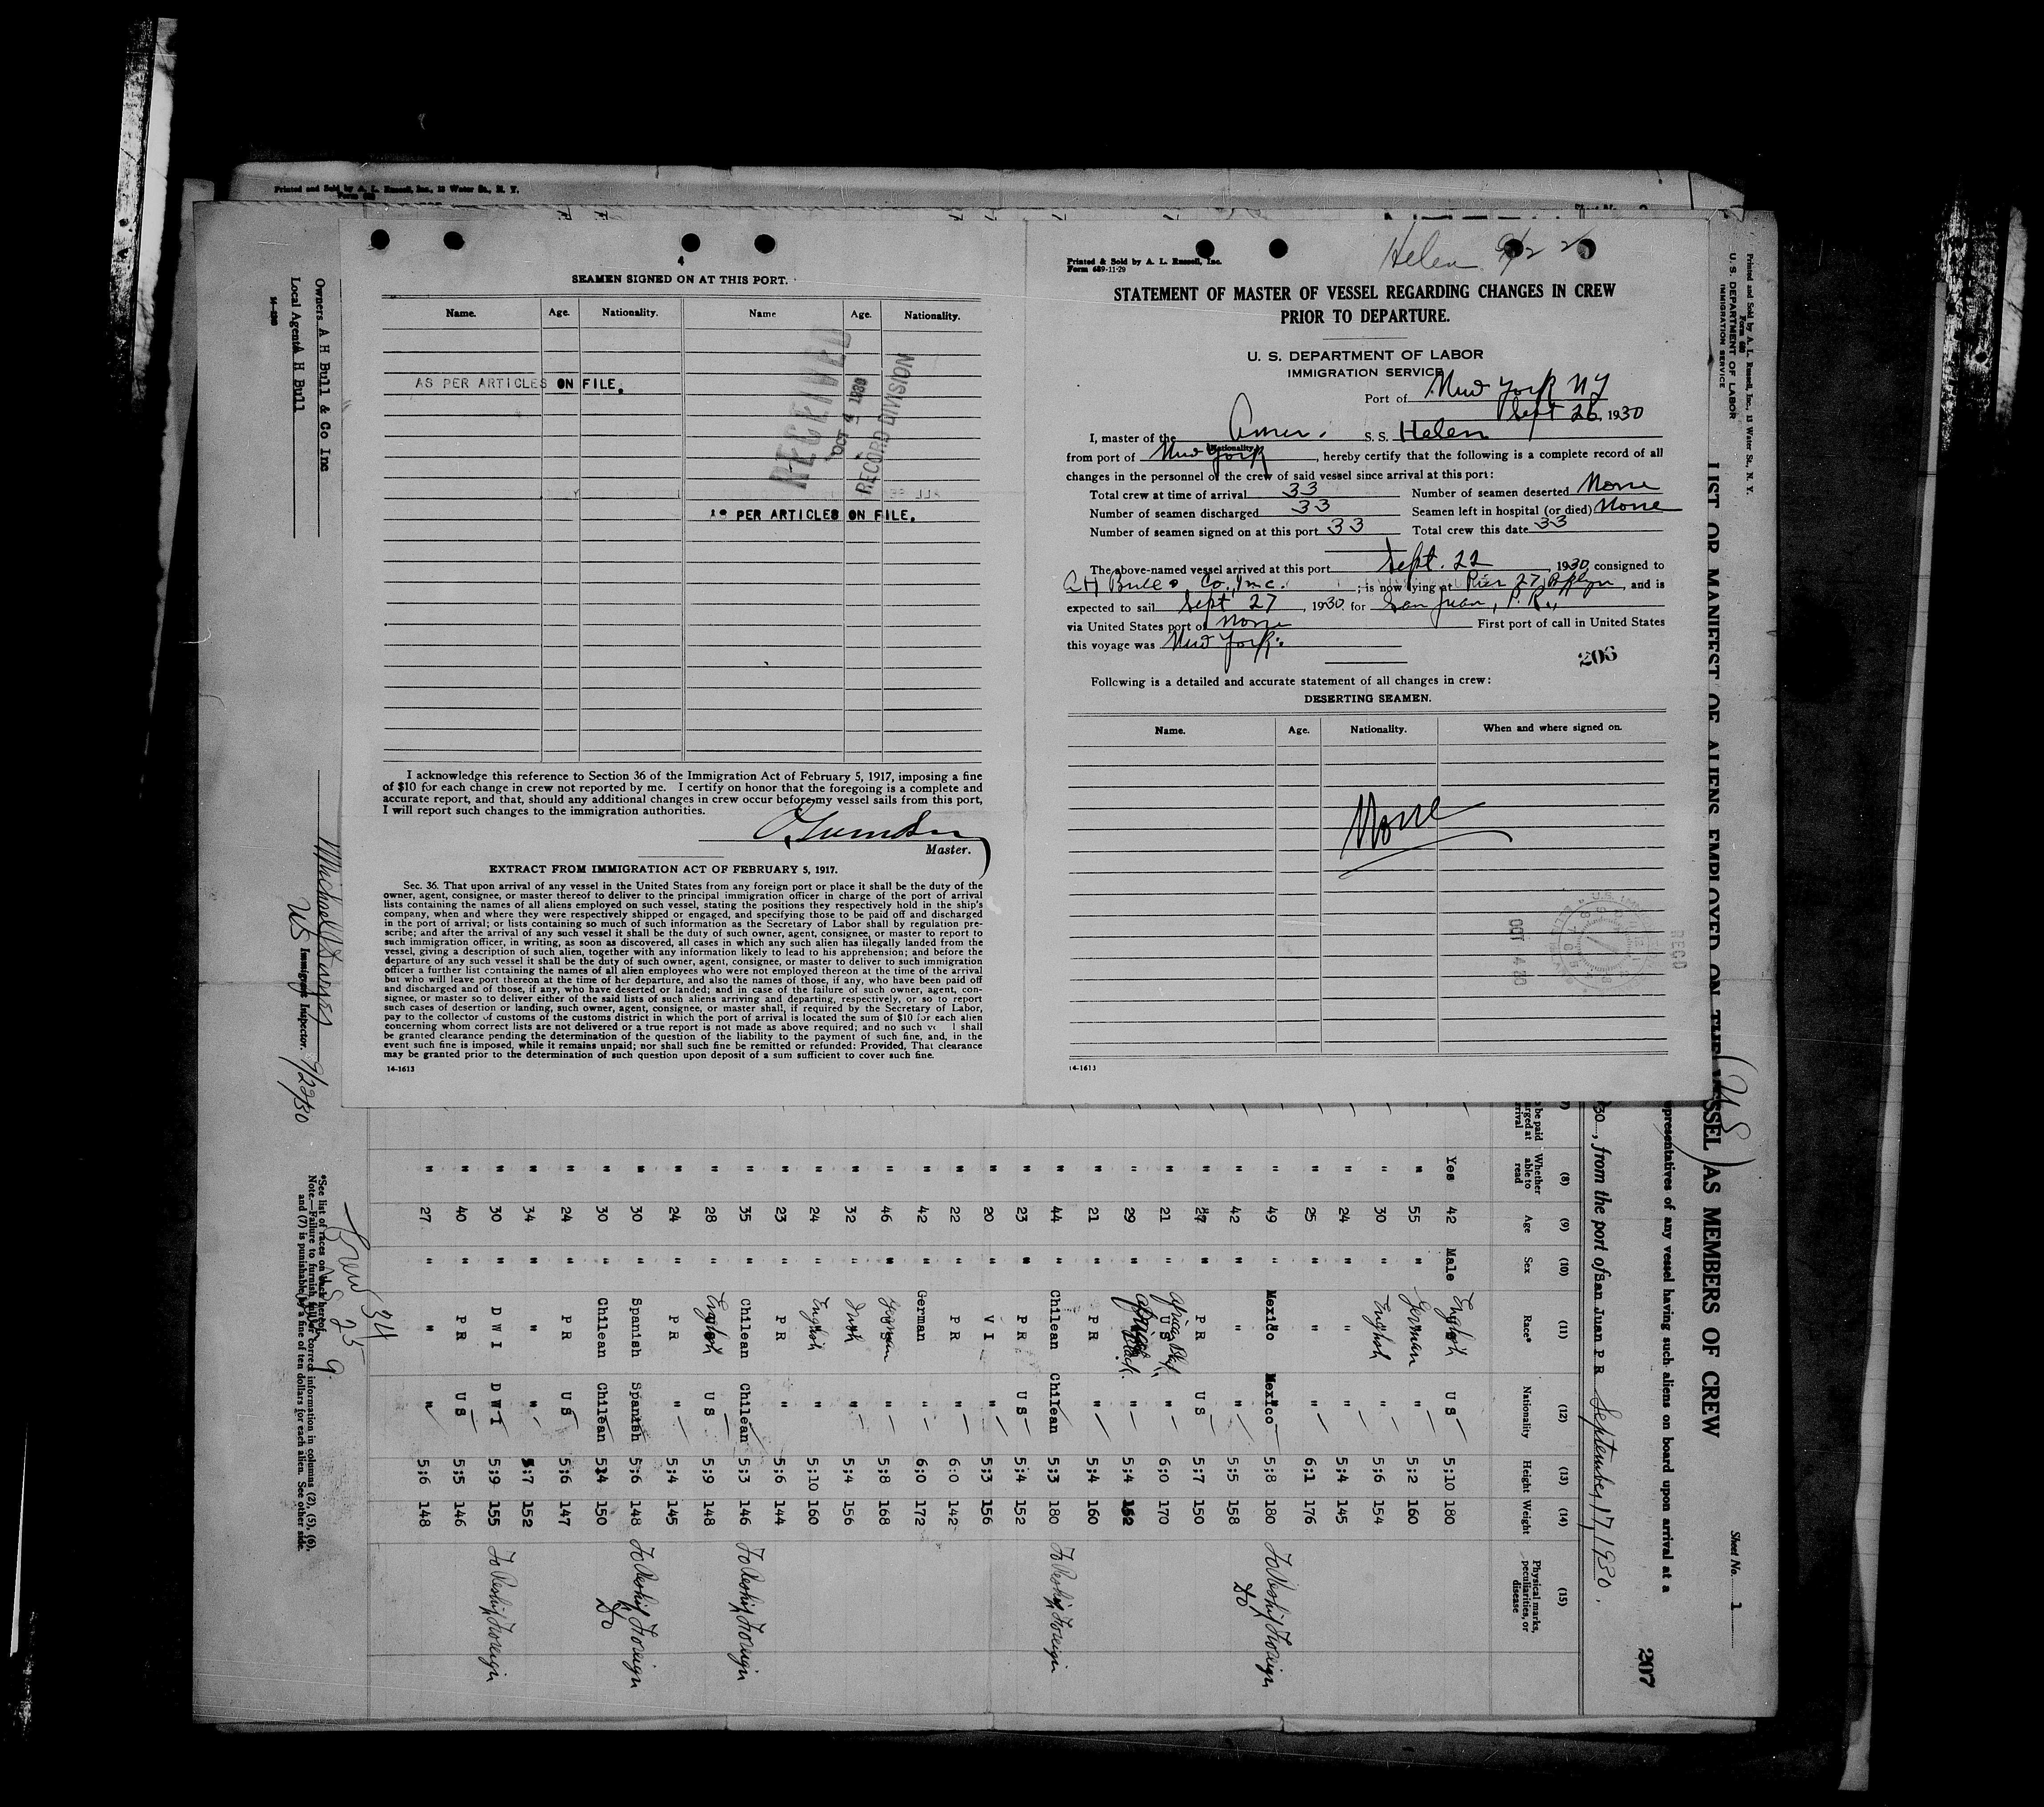 Printed and Sold by A. L. Russell, Inc., 13 Water St., N. Y.
4
SEAMEN SIGNED ON AT THIS PORT.
Name. Age. Nationality. Name Age. Nationality.
AS PER ARTICLES ON FILE.
RECEIVED
OCT 4 1930
RECORD DIVISION
AS PER ARTICLES ON FILE.
I acknowledge this reference to Section 36 of the Immigration Act of February 5, 1917, imposing a fine
of $10 for each change in crew not reported by me. I certify on honor that the foregoing is a complete and
accurate report, and that, should any additional changes in crew occur before my vessel sails from this port,
I will report such changes to the immigration authorities.
Master.
EXTRACT FROM IMMIGRATION ACT OF FEBRUARY 5, 1917.
Sec. 36. That upon arrival of any vessel in the United States from any foreign port or place it shall be the duty of the
owner, agent, consignee, or master thereof to deliver to the principal immigration officer in charge of the port of arrival
lists containing the names of all aliens employed on such vessel, stating the positions they respectively hold in the ship's
company, when and where they were respectively shipped or engaged, and specifying those to be paid off and discharged
in the port of arrival; or lists containing so much of such information as the Secretary of Labor shall by regulation pre-
scribe; and after the arrival of any such vessel it shall be the duty of such owner, agent, consignee, or master to report to
such immigration officer, in writing, as soon as discovered, all cases in which any such alien has illegally landed from the
vessel, giving a description of such alien, together with any information likely to lead to his apprehension; and before the
departure of any such vessel it shall be the duty of such owner, agent, consignee, or master to deliver to such immigration
officer a further list containing the names of all alien employees who were not employed thereon at the time of the arrival
but who will leave port thereon at the time of her departure, and also the names of those, if any, who have been paid off
and discharged and of those, if any, who have deserted or landed; and in case of the failure of such owner, agent, con-
signee, or master so to deliver either of the said lists of such aliens arriving and departing, respectively, or so to report
such cases of desertion or landing, such owner, agent, consignee, or master shall, if required by the Secretary of Labor,
pay to the collector of customs of the customs district in which the port of arrival is located the sum of $10 for each alien
concerning whom correct lists are not delivered or a true report is not made as above required; and no such ve l shall
be granted clearance pending the determination of the question of the liability to the payment of such fine, and, in the
event such fine is imposed, while it remains unpaid; nor shall such fine be remitted or refunded: Provided, That clearance
may be granted prior to the determination of such question upon deposit of a sum sufficient to cover such fine.
14-1613
Helen 9/22
Printed & Sold by A. L. Russell, Inc.
Form 689-11-29
STATEMENT OF MASTER OF VESSEL REGARDING CHANGES IN CREW
PRIOR TO DEPARTURE.
U. S. DEPARTMENT OF LABOR
IMMIGRATION SERVICE
Port of New York NY
Sept 26, 1930
I, master of the Amer. S. S. Helen
(Nationality)
from port of New York, hereby certify that the following is a complete record of all
changes in the personnel of the crew of said vessel since arrival at this port:
Total crew at time of arrival 33 Number of seamen deserted None
Number of seamen discharged 33 Seamen left in hospital (or died) None
Number of seamen signed on at this port 33 Total crew this date 33
The above-named vessel arrived at this port Sept. 22 1930, consigned to
A H Bull & Co., Inc. ; is now lying at Pier 27, Bklyn, and is
expected to sail Sept 27, 1930 for San Juan, P. R.,
via United States port of None First port of call in United States
this voyage was New York.
206
Following is a detailed and accurate statement of all changes in crew:
DESERTING SEAMEN.
Name. Age. Nationality. When and where signed on.
None
OCT 4 30
RECD
14-1613
Printed and Sold by A. L. Russell, Inc., 13 Water St., N. Y.
Form 680
U. S. DEPARTMENT OF LABOR
IMMIGRATION SERVICE
Sheet No. 1
LIST OR MANIFEST OF ALIENS EMPLOYED ON THE VESSEL AS MEMBERS OF CREW
(US)
207
representatives of any vessel having such aliens on board upon arrival at a
30, from the port of San Juan P R September, 17, 1930.
(8) (9) (10) (11) (12) (13) (14) (15)
Whether able to read Age Sex Race* Nationality Height Weight Physical marks, peculiarities, or disease
Yes 42 Male English US 5;10 180
" 55 " German " 5;2 160
" 30 " English " 5;6 154
" 24 " " " 5;4 145
" 25 " " " 6;1 176
" 49 " Mexico Mexico 5;8 180 To Reship Foreign
" 42 " " " 5;5 158 Do
" 27 " P R U S 5;7 150
" 21 " African Blk " 6;0 170
" 29 " Black " 5;4 152
" 21 " P R " 5;4 160
" 44 " Chilean Chilean 5;3 180 To Reship Foreign
" 23 " P R U S 5;4 152
" 20 " V I " 5;3 156
" 22 " P R " 6;0 142
" 42 " German " 6;0 172
" 46 " German " 5;8 168
" 32 " Irish " 5;4 156
" 24 " English " 5;10 160
" 23 " P R " 5;6 144
" 35 " Chilean Chilean 5;3 146 To Reship Foreign
" 28 " English U S 5;9 148
" 24 " P R " 5;4 145
" 30 " Spanish Spanish 5;6 148 To Reship Foreign
" 30 " Chilean Chilean 5;4 150 Do
" 24 " P R U S 5;6 147
" 34 " " " 5;7 152
" 30 " D W I D W I 5;9 155 To Reship Foreign
" 40 " P R U S 5;5 146
" 27 " " " 5;6 148
Crew 34
US 25
9
Owners A H Bull & Co Inc
Local Agents A H Bull
14-430
US Immigrant Inspector. 9/22/30
*See list of races on back hereof.
Note.—Failure to furnish full or correct information in columns (2), (5), (6),
and (7) is punishable by a fine of ten dollars for each alien. See other side.